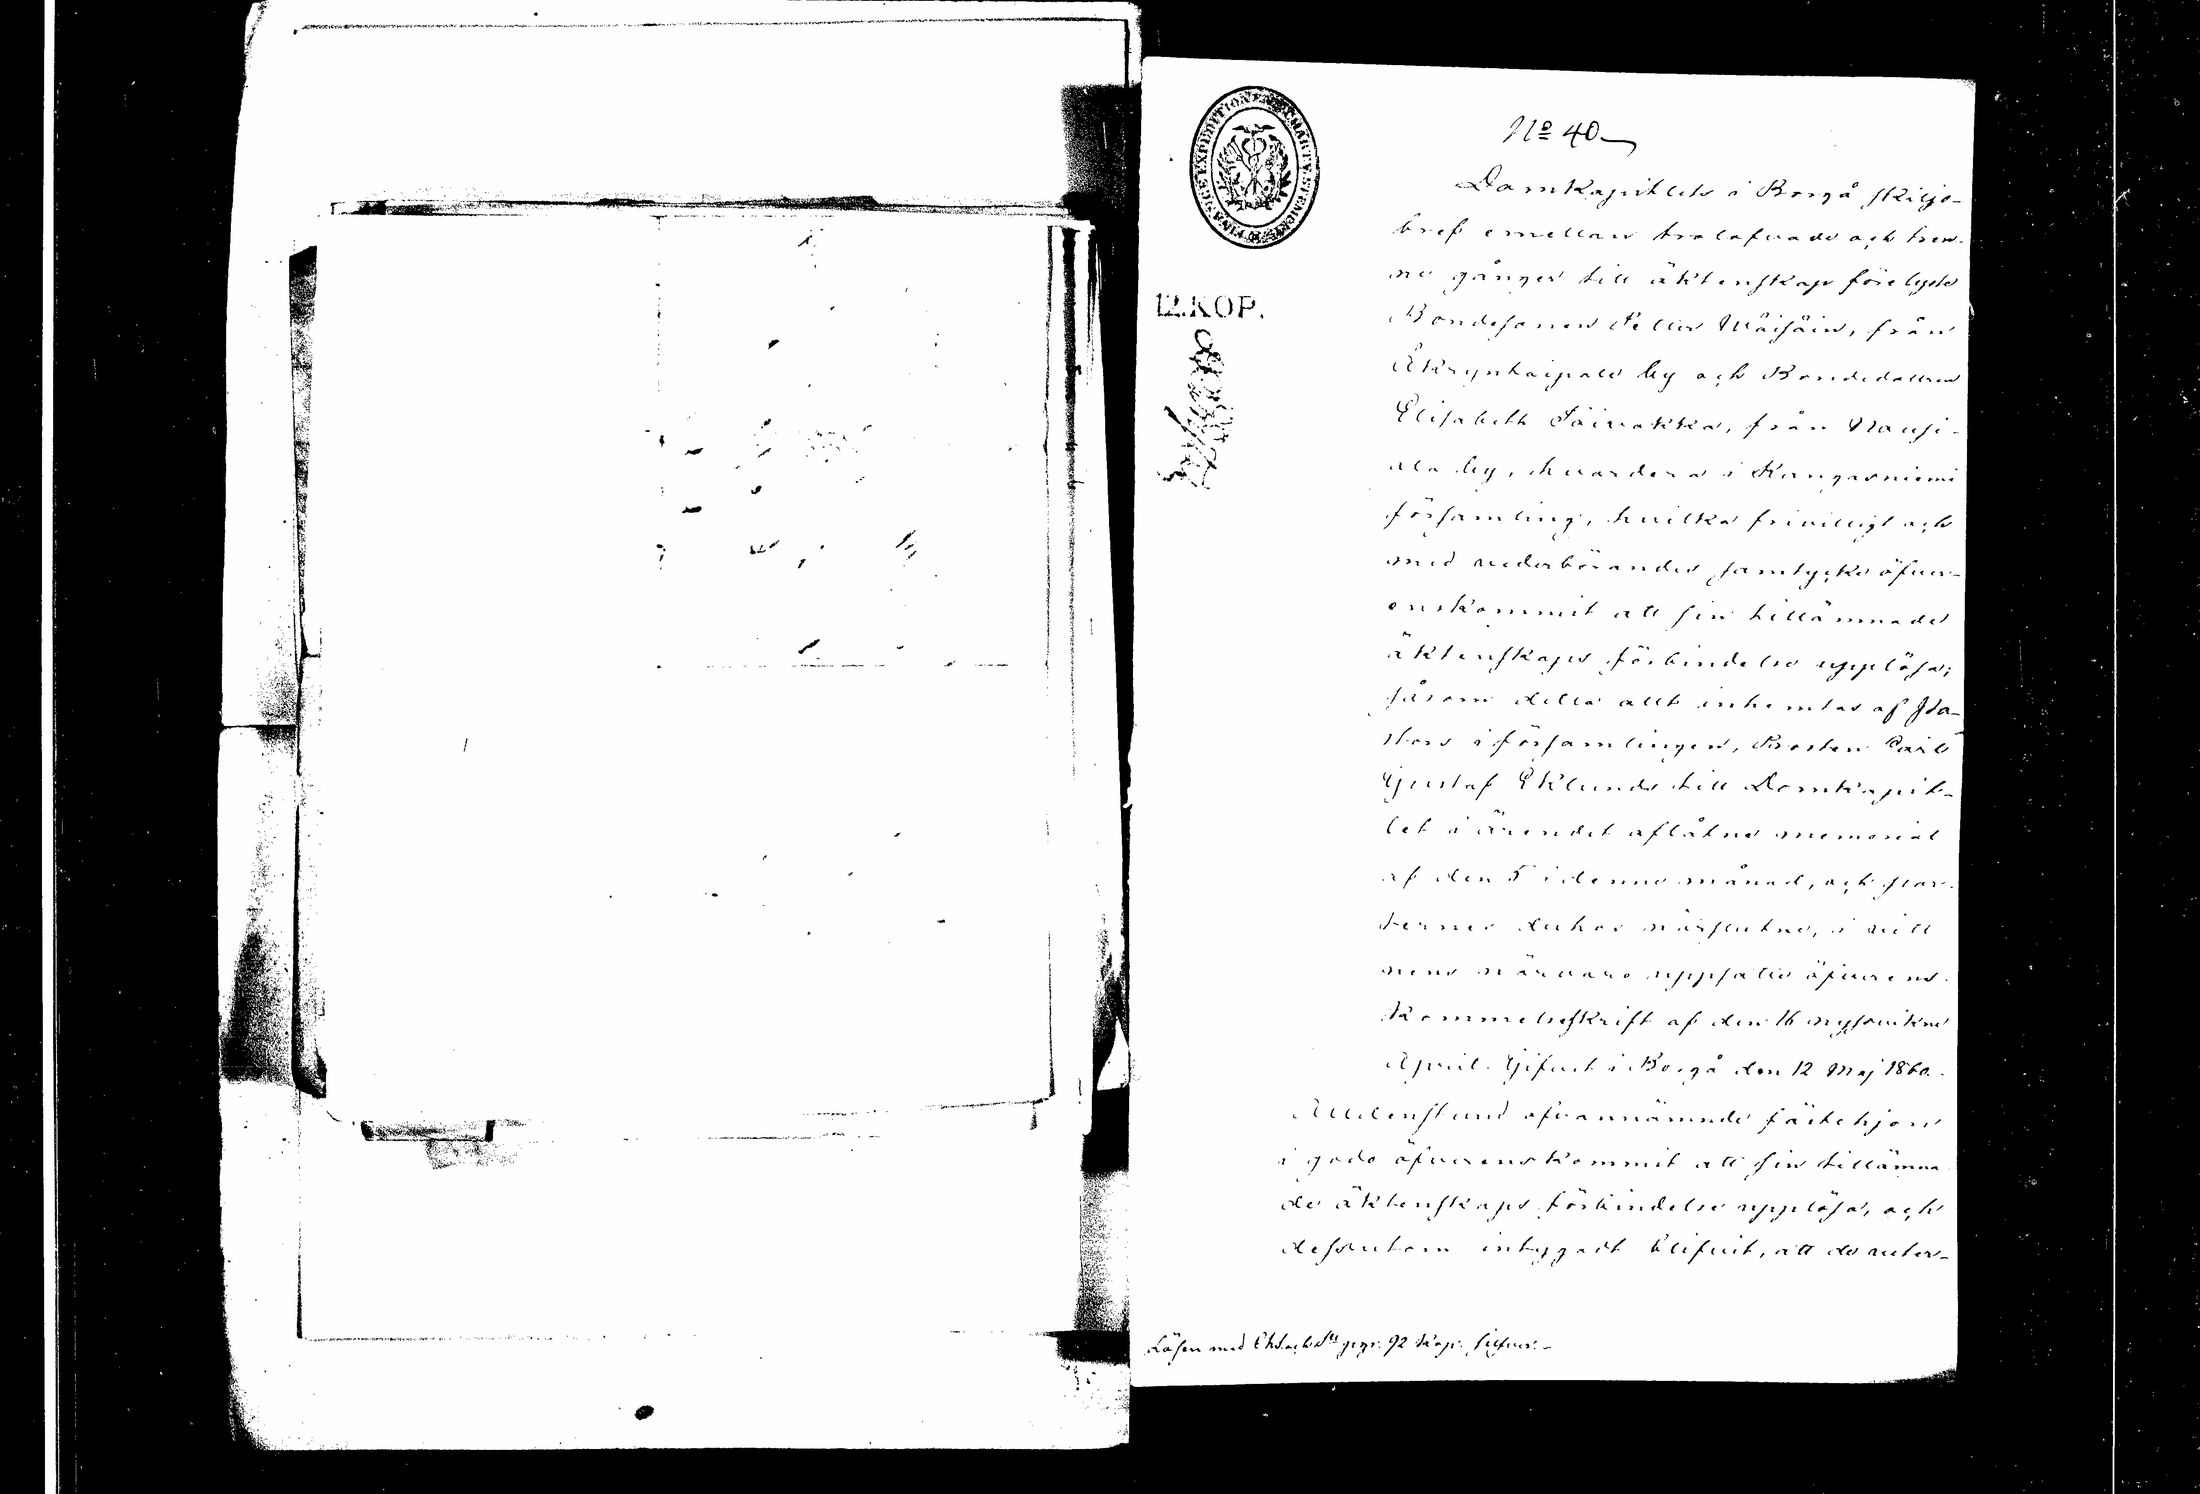 No 40
Domkapitlets i Borgå skiljo-
bref emellan trolofvade och tren-
ne gånger till äktenskap förelyste
Bondesonen Petter Wäisäin, från
by och Bondedottren
Elisabeth Paivakka, från
ala by, hvardera i Kangasniemi
församling, hvilka frivilligt och
med vederbörandes samtycke öfver-
enskommit att sin tillämnade
äktenskaps förbindelse upplösa;
såsom detta allt inhemtas af Pa-
stors i församlingen, Prosten Carl
Gustaf Eklunds till Domkapit-
let i ärendet aflåtne memorial
af den 5 i denne månad, och par-
ternes derhos närslutne, i vitt
nens närvaro uppsatte öfverens-
kommelseskrift af den 16 nyssvikne
April. Gifvet i Borgå den 12 Maj 1860.
Alldenstund ofvannämnde fästehjon
i godo öfverenskommit att sin tillämna
de äktenskaps förbindelse upplösa, och
dessutom intygadt blifvit, att de uter-
12.KOP.
Lösen med 92 Kop. silfver.